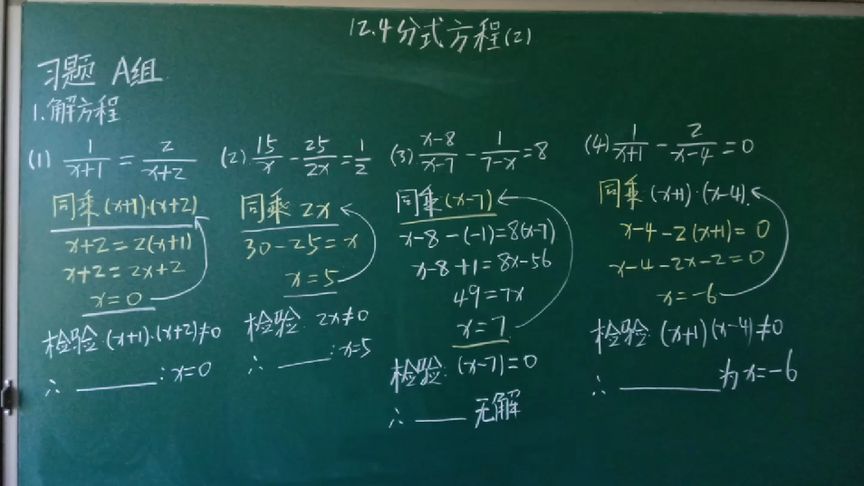 12.4分式方程(2)
习题 A组
1.解方程
(1) 1/(x+1) = 2/(x+2)
同乘(x+1)·(x+2)
x+2=2(x+1)
x+2=2x+2
x=0
检验:(x+1)·(x+2)≠0
∴ ______:x=0
(2) 15/x - 25/2x = 1/2
同乘 2x
30-25=x
x=5
检验: 2x≠0
∴ ____:x=5
(3) (x-8)/(x-7) - 1/(7-x) = 8
同乘(x-7)
x-8-(-1)=8(x-7)
x-8+1=8x-56
49=7x
x=7
检验:(x-7)=0
∴ ____ 无解
(4) 1/(x+1) - 2/(x-4) = 0
同乘(x+1)·(x-4).
x-4-2(x+1)=0
x-4-2x-2=0
x=-6
检验:(x+1)(x-4)≠0
∴ ________为x=-6